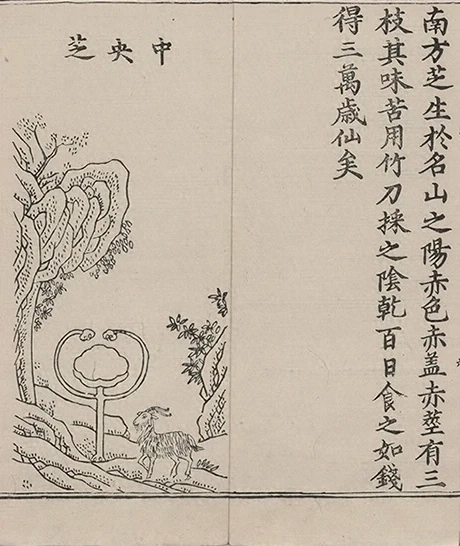 南方芝生於名山之陽赤色赤盖赤莖有三
枝其味苦用竹刀採之陰乾百日食之如錢
得三萬歲仙矣
中央芝